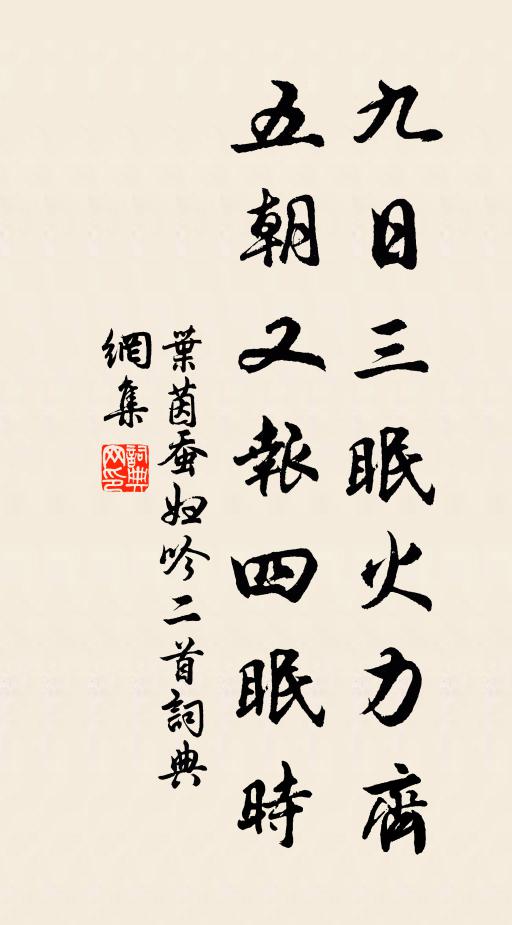 九日三眠火力齊
五朝又報四眠時
葉茵蚕妇吟二首詞典
網集
詞典网印